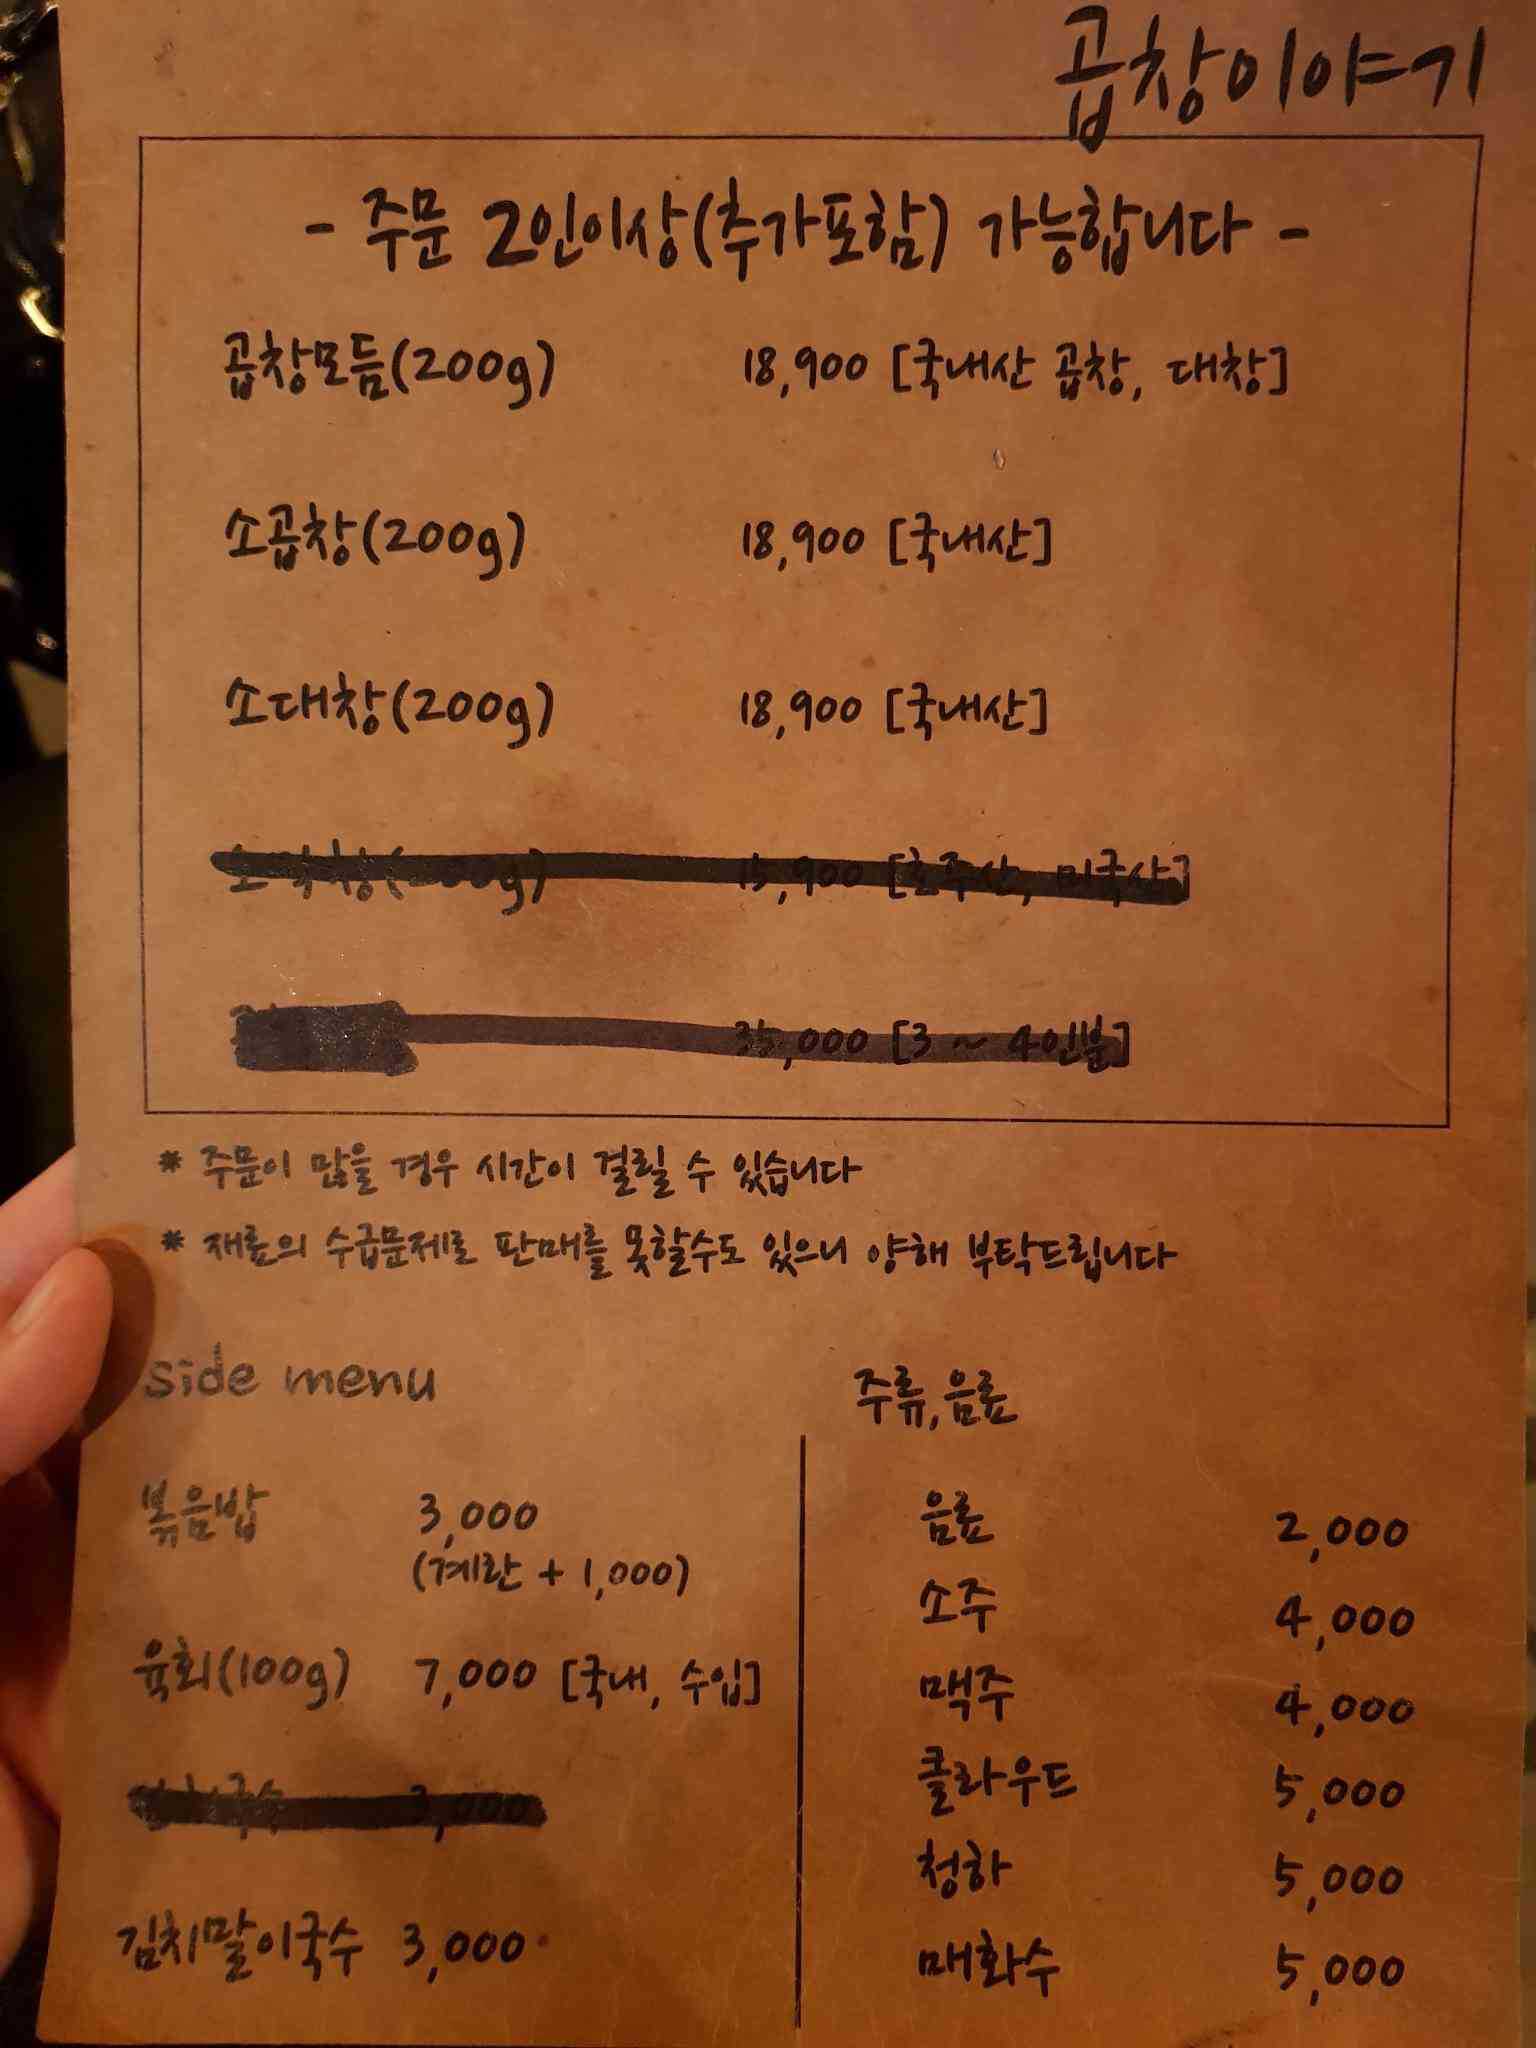 곱창이야기
- 주문 2인이상(추가포함) 가능합니다 -
곱창모듬(200g) 18,900 [국내산 곱창, 대창]
소곱창(200g) 18,900 [국내산]
소대창(200g) 18,900 [국내산]
소막창(200g) 15,900 [호주산, 미국산]
35,000 [3 ~ 4인분]
* 주문이 많을 경우 시간이 걸릴 수 있습니다
* 재료의 수급문제로 판매를 못할수도 있으니 양해 부탁드립니다
side menu
볶음밥 3,000
(계란 + 1,000)
육회(100g) 7,000 [국내, 수입]
3,000
김치말이국수 3,000
주류,음료
음료 2,000
소주 4,000
맥주 4,000
클라우드 5,000
청하 5,000
매화수 5,000